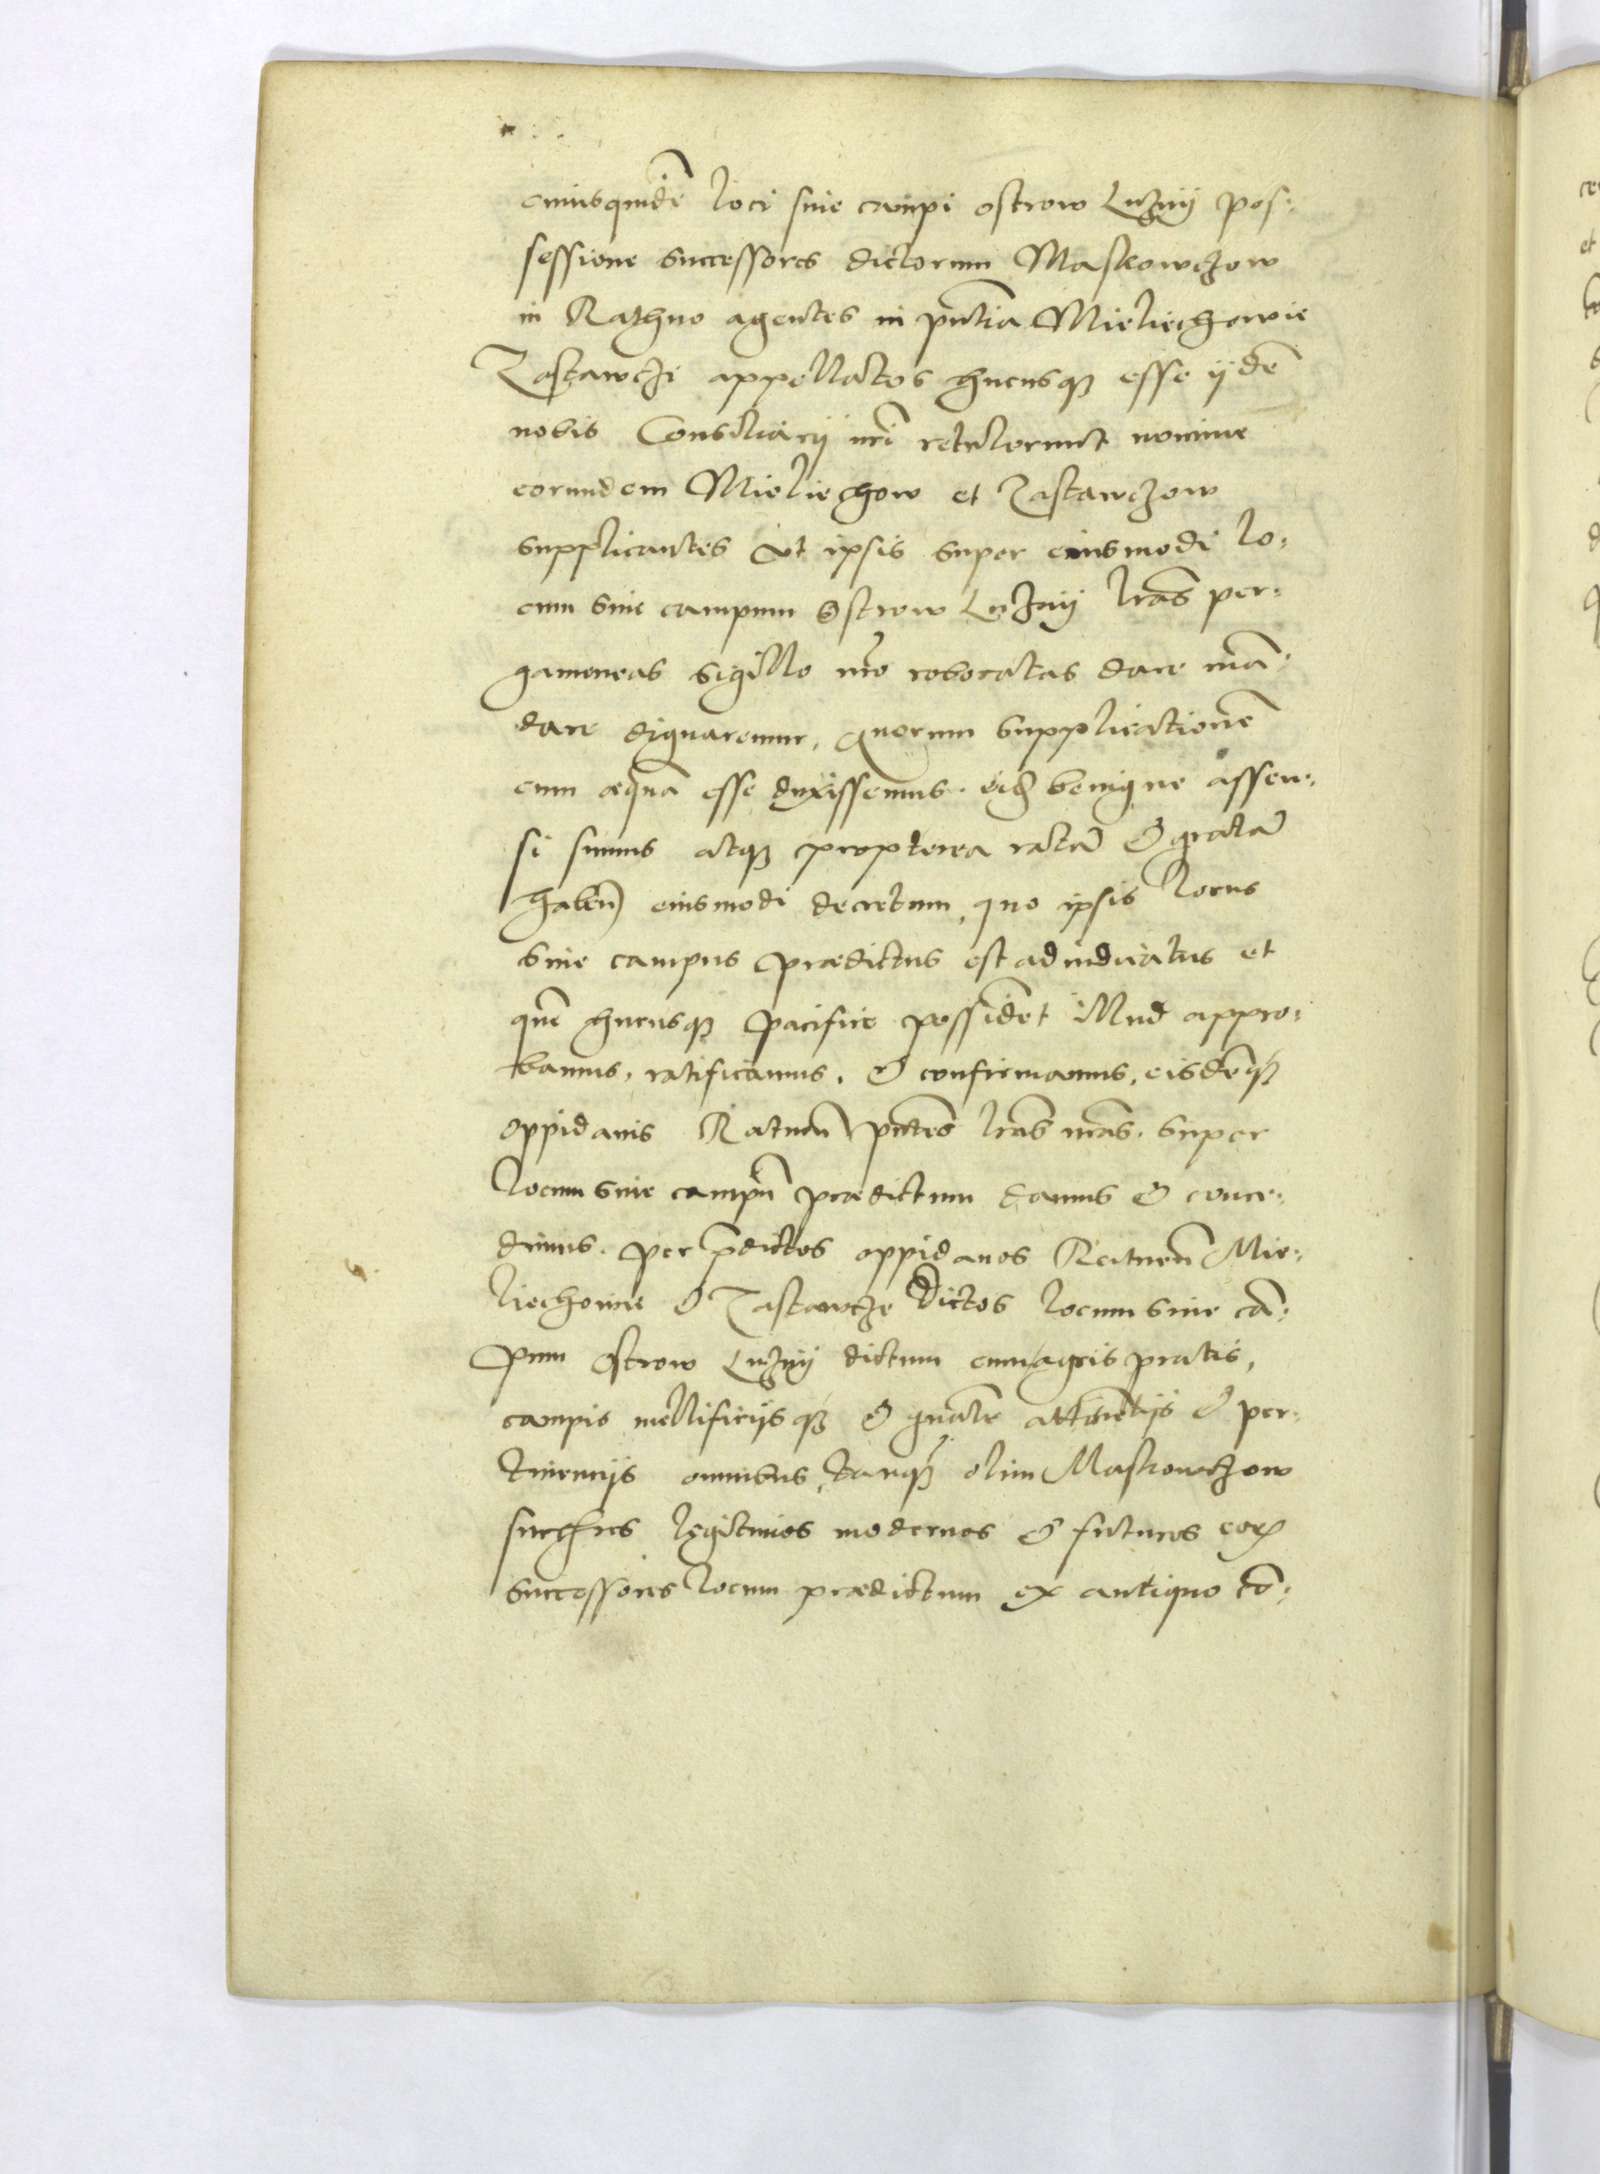 cuiusquidē loci siue campi ostrow Luzny pos:
sessione successores dictorum Maskowczow
in Rathno agentes in pn̄tia Mieliechowie
Zastawcze appellatos hucusq3 esse ijdē
nobis Consiliarij nrī retulerunt nomine
eorundem Mieliechow et Zastawczow
supplicantes vt ipsis super eiusmodi lo:
cum siue campum Ostrow Luzny lrās per:
gameneas sigillo nr̄o roboratas dare mā:
dare dignaremur, quorum supplicationē
cum æquā esse duxissemus. benigne assen:
si sumus atq3 propterea ratū & gratū
haben̄ eiusmodi decretum, quo ipsis locus
siue campus prædictus est adiudicatus et
quē hucusq3 pacifice possidēt illud appro:
bamus, ratificamus, & confirmamus, eisdēq3
oppidanis Ratnen̄ pn̄tes lrās nrās super
locum siue campū prædictum damus & conce:
dimus. per p̄dictos oppidanos Ratnen̄ Mie:
liechowie & Zastawcze dictos locum siue cā:
pum ostrow Luzny dictum cum agris pratis,
campis mellificijsq3 & gnāliter attinētijs & per:
tinentijs omnibus, tanq3 olim Maskowczow
successores legitimos modernos & futuros eorū
successores locum prædictum ex antiquo tō: